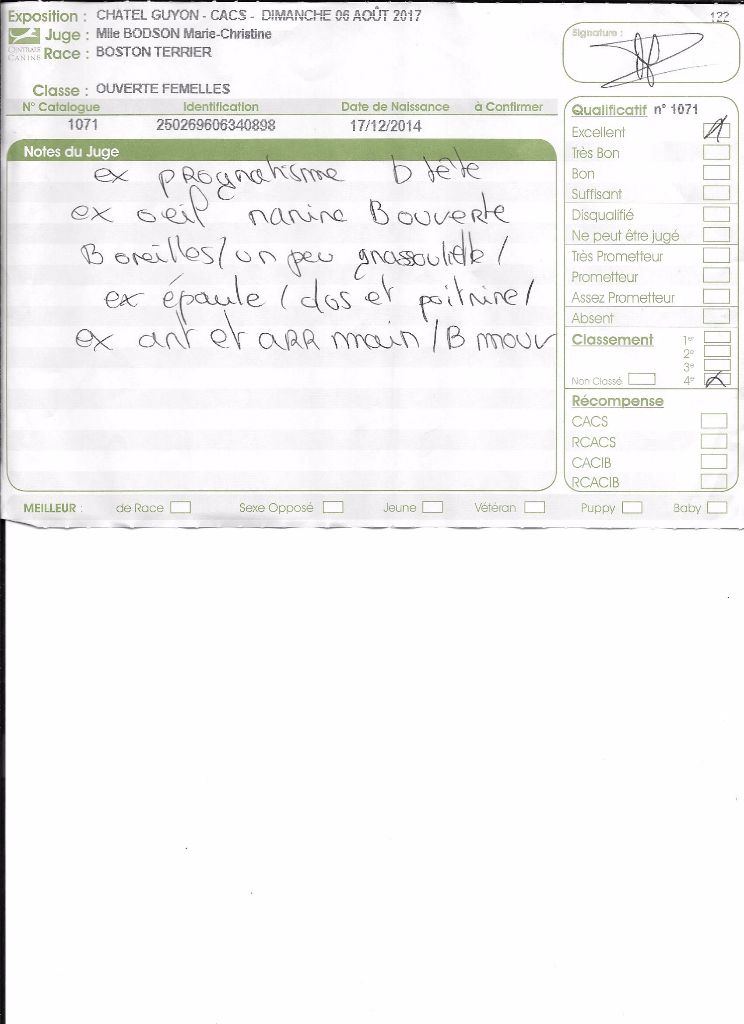 Exposition : CHATEL GUYON - CACS - DIMANCHE 06 AOÛT 2017
122
CENTRALE CANINE
Juge : Mlle BODSON Marie-Christine
Race : BOSTON TERRIER
Signature :
Classe : OUVERTE FEMELLES
N° Catalogue Identification Date de Naissance à Confirmer
1071 250269606340898 17/12/2014
Notes du Juge
ex prognatisme b tête
ex oeil narine B ouverte
B oreilles / un peu grassouillette /
ex épaule / dos et poitrine /
ex ant et arr main / B mouv
Qualificatif n° 1071
Excellent
Très Bon
Bon
Suffisant
Disqualifié
Ne peut être jugé
Très Prometteur
Prometteur
Assez Prometteur
Absent
Classement 1er
2e
3e
Non Classé 4e
Récompense
CACS
RCACS
CACIB
RCACIB
MEILLEUR : de Race Sexe Opposé Jeune Vétéran Puppy Baby